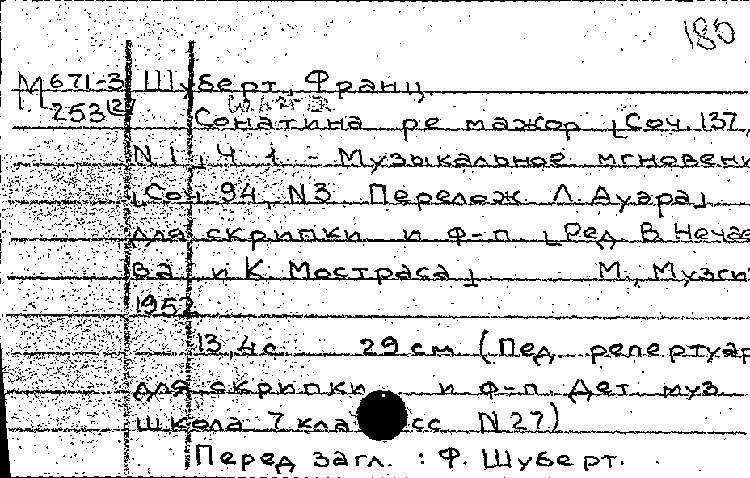 180
М 671-3 Шуберт, Франц.
253(2) Сонатина ре мажор [Соч. 137,
N 1, ч 1 - Музыкальное мгновени
[Соч 94, N3 Перелож Л. Ауара]
для скрипки и ф-п [Ред. В. Нечае
ва и К. Мостраса] М., Музги
1952
13, 4 с 29 см (Пед. репертуар
для скрипки и ф-п. Дет муз
школа 7 класс N 27)
Перед загл. : Ф. Шуберт.